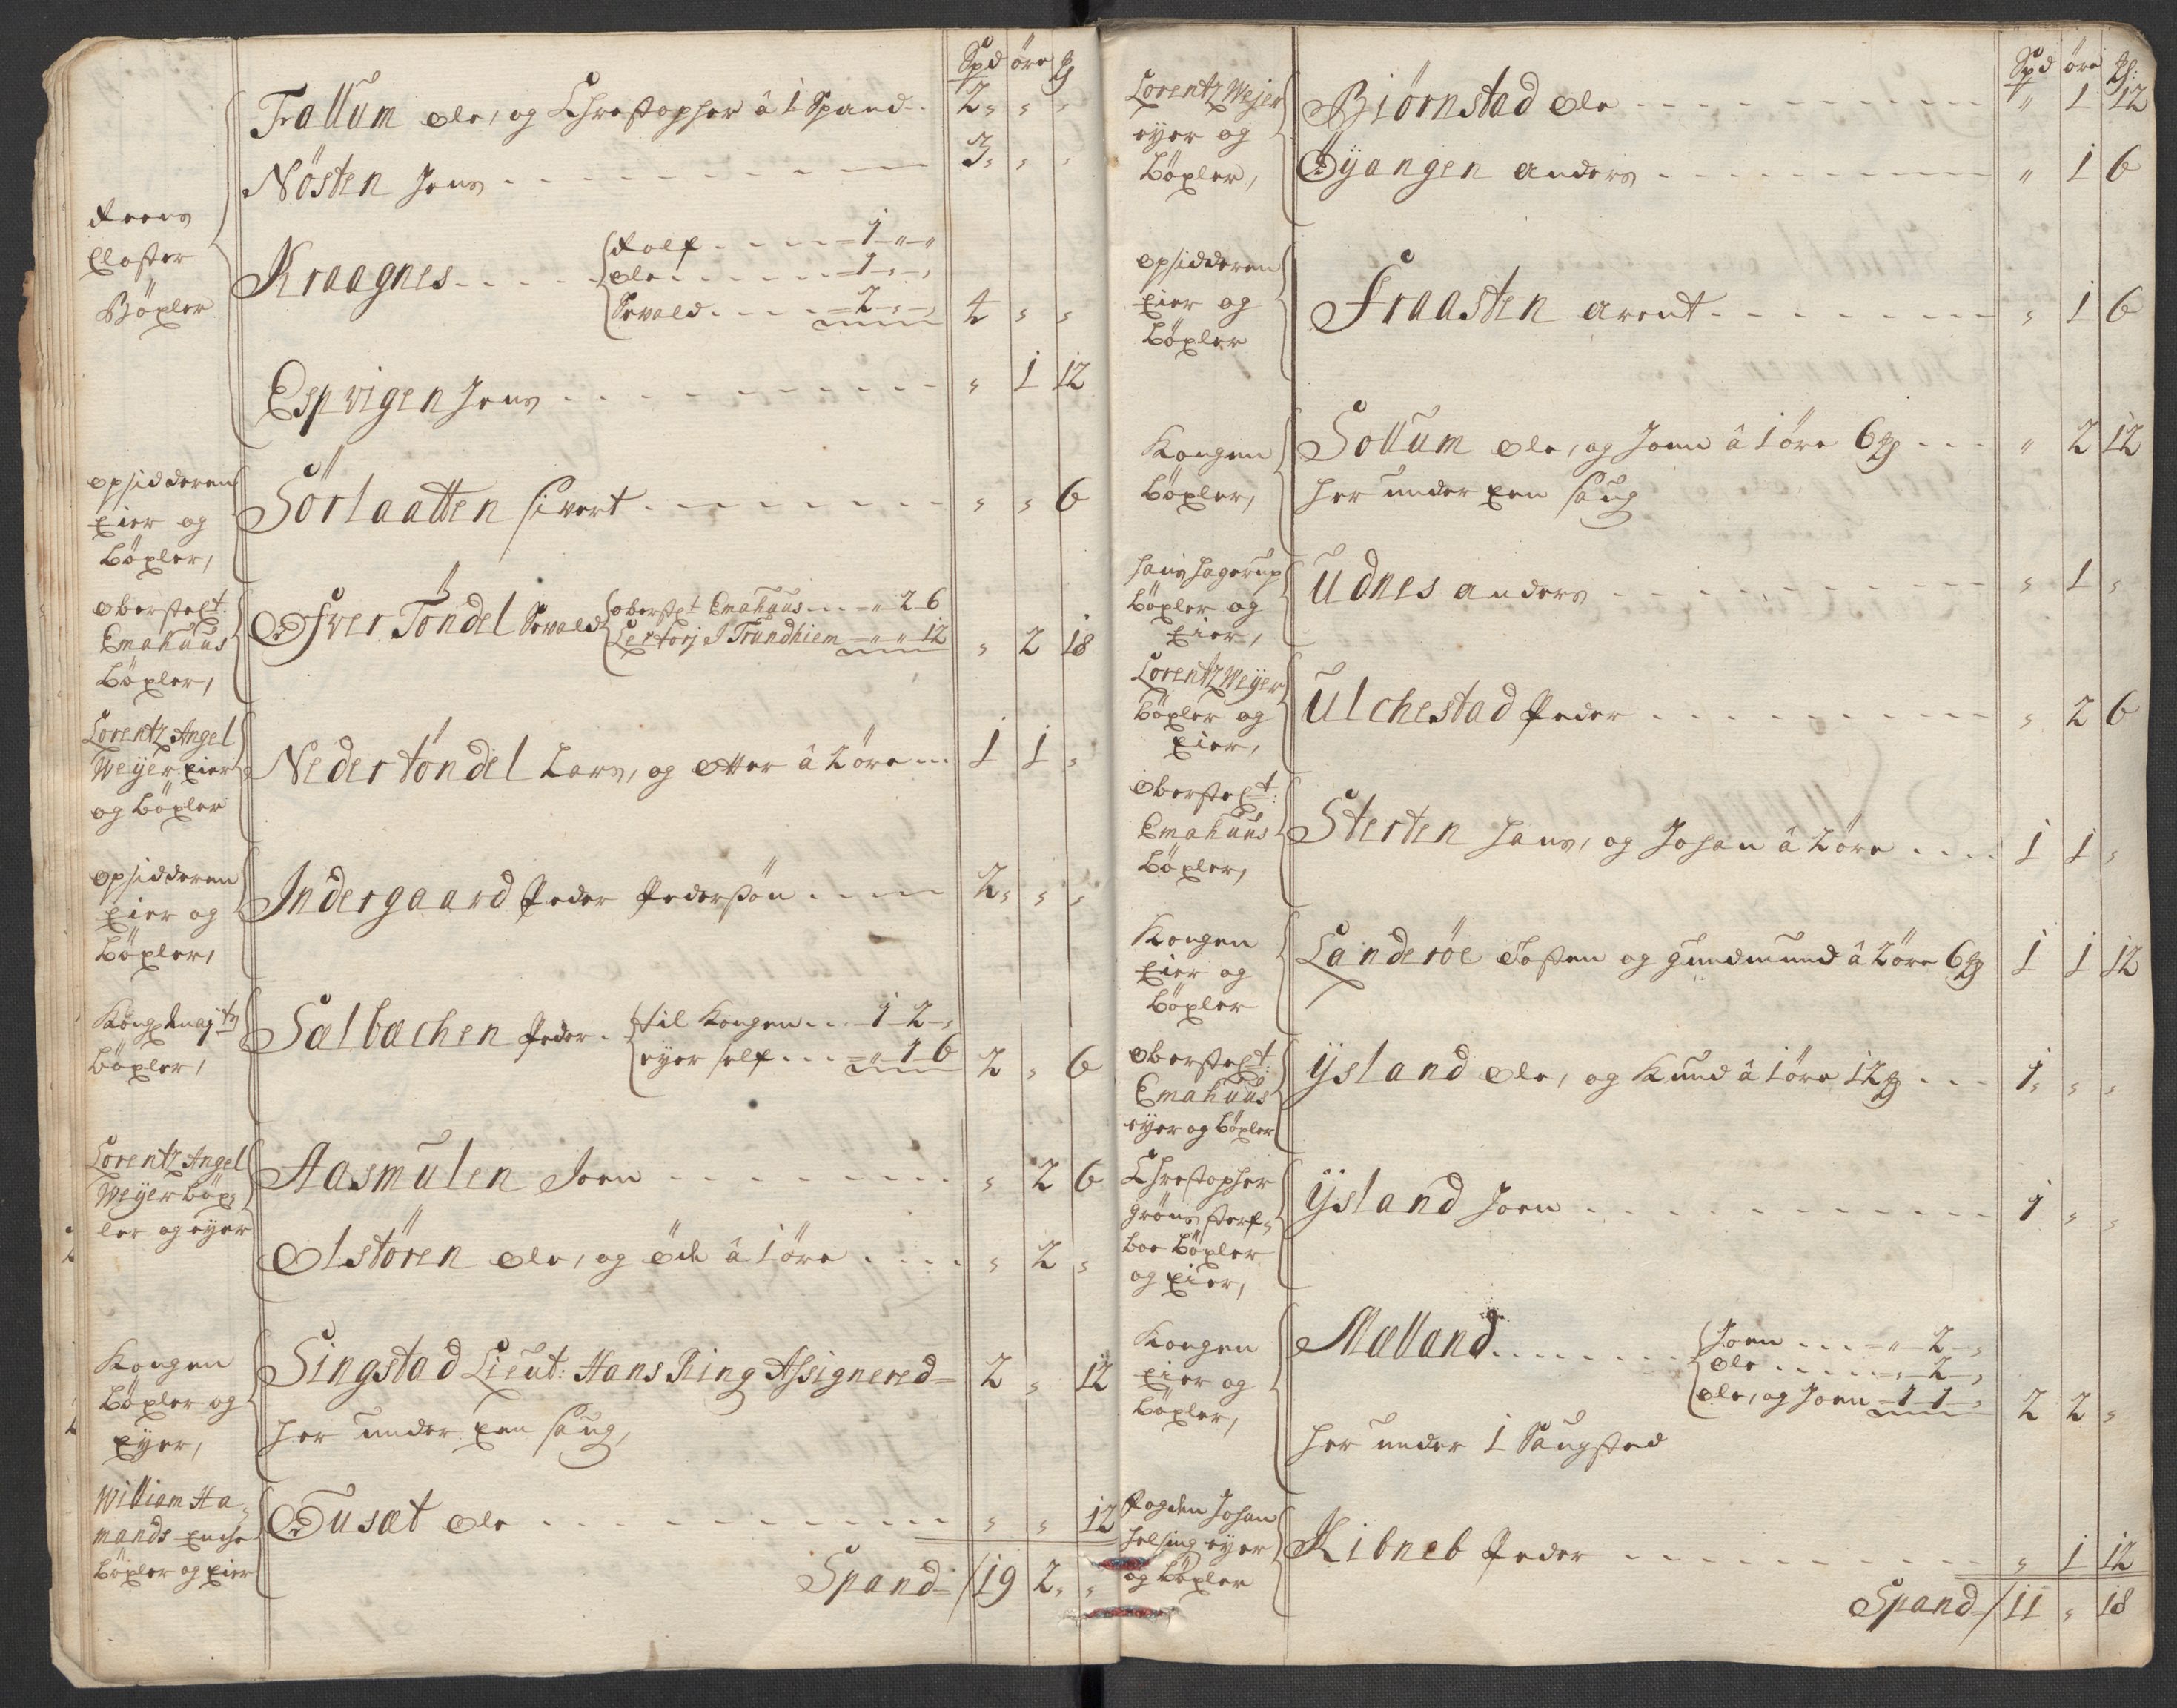 Spd öre ꝑ
Trallum Ole, og Christopher â 1 Spand 2 " "
Nösten Jens 3 " "
Reens
Closter
Böxler
Kraagnes Rolf 1 " "
Ole 1 " "
Sevald 2 " " 4 " "
Espvigen Jens " 1 12
Opsidderen
Eier og
böxler,
Sörlaatten Sivert " " 6
Oberstelt:
Emahuus
böxler,
Öfver Töndel Sevald Oberstlt Emahuus " 2 6
Lectorj I Trundhiem " " 12 " 2 18
Lorentz Angel
Weÿer Eier
og böxler
Neder töndel Lars, og Otter â 2 öre 1 1 "
Opsidderen
Eier og
böxler,
Indergaard Peder Pedersön 2 " "
Kong: Mayts
böxler,
Sælbachen Peder til Kongen 1 2 "
eyer self " 1 6 2 " 6
Lorentz Angel
Weÿer böx-
ler og eyer
Aasmulen Joen " 2 6
Olstören Ole, og â 1 öre " 2 "
Kongen
Böxler og
Eyer,
Singstad Lieut: Hans Ring Assignered 2 " 12
Her under een saug,
William Ha-
mands Enche
böxler og Eier
Tusæt Ole " " 12
Spand 19 2 "
Spd öre ꝑ:
Lorentz Weÿer
eyer og
böxler,
Biörnstad Ole " 1 12
Öÿangen Anders " 1 6
Opsidderen
Eier og
böxler
Fraasten Arent " 1 6
Kongen
böxler,
Sollum Ole, og Joen â 1 öre 6 ꝑ " 2 12
Her under een saug
Hans Hagerup
böxler og
Eier,
Udnes Anders " 1 "
Lorentz Weÿer
böxler og
Eier,
Ulchestad Peder " 2 6
Oberstelt:
Emahuus
böxler,
Sterten Hans, og Johan â 2 öre 1 1 "
Kongen
Eier og
böxler
Landeröe Tosten og Gundmund â 2 öre 6 ꝑ 1 1 12
Oberstelt:
Emahuus
eyer og böxler
Ÿsland Ole, og Knud â 1 öre 12 ꝑ 1 " "
Christopher
Gröns sterf-
boe böxler
og Eier,
Ÿsland Joen 1 " "
Kongen
Eier og
böxler,
Mælland Joen " 2 "
Ole " 2 "
Ole, og Joen 1 1 " 2 2 "
Her under 1 Saugsted
Fogden Johan
Helsing eyer
og böxler
Kibneb Peder " 1 12
Spand 11 " 18